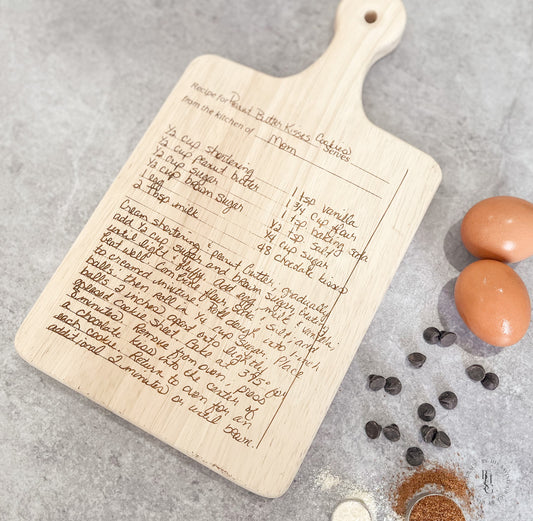 Recipe for Peanut Butter Kisses Cookies
from the kitchen of Mom Serves
1/2 cup shortening
1/2 cup peanut butter
1/2 cup sugar
1/2 cup brown sugar
1 egg
2 tbsp milk
1 tsp vanilla
1 3/4 cup flour
1 tsp baking soda
1/2 tsp salt
1/4 cup sugar
48 chocolate kisses
Cream shortening & peanut butter, gradually
add 1/2 cup sugar and brown sugar, beating
until light & fluffy. Add egg, milk & vanilla.
Beat well. Combine flour, soda, salt, add
to creamed mixture. Roll dough into 1 inch
balls, then roll in 1/4 cup sugar. Place
balls 2 inches apart onto lightly
greased cookie sheet. Bake at 375° for
8 minutes. Remove from oven, press
a chocolate kiss into the center of
each cookie. Return to oven for an
additional 2 minutes or until brown.